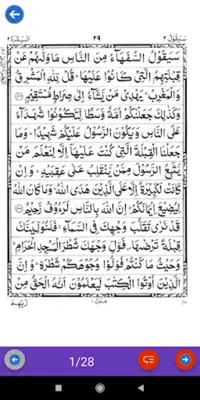 سَيَقُوْلُ ٢ ٢٩ الْبَقَرَة ٢
سَيَقُوْلُ السُّفَهَآءُ مِنَ النَّاسِ مَا وَلّٰىهُمْ عَنْ
قِبْلَتِهِمُ الَّتِيْ كَانُوْا عَلَيْهَا ؕ قُلْ لِّلّٰهِ الْمَشْرِقُ
وَالْمَغْرِبُ ؕ يَهْدِيْ مَنْ يَّشَآءُ اِلٰى صِرَاطٍ مُّسْتَقِيْمٍ
وَكَذٰلِكَ جَعَلْنٰكُمْ اُمَّةً وَّسَطًا لِّتَكُوْنُوْا شُهَدَآءَ
عَلَى النَّاسِ وَيَكُوْنَ الرَّسُوْلُ عَلَيْكُمْ شَهِيْدًا ؕ وَمَا
جَعَلْنَا الْقِبْلَةَ الَّتِيْ كُنْتَ عَلَيْهَآ اِلَّا لِنَعْلَمَ مَنْ
يَّتَّبِعُ الرَّسُوْلَ مِمَّنْ يَّنْقَلِبُ عَلٰى عَقِبَيْهِ ؕ وَاِنْ
كَانَتْ لَكَبِيْرَةً اِلَّا عَلَى الَّذِيْنَ هَدَى اللّٰهُ ؕ وَمَا كَانَ اللّٰهُ
لِيُضِيْعَ اِيْمَانَكُمْ ؕ اِنَّ اللّٰهَ بِالنَّاسِ لَرَءُوْفٌ رَّحِيْمٌ
قَدْ نَرٰى تَقَلُّبَ وَجْهِكَ فِي السَّمَآءِ ۚ فَلَنُوَلِّيَنَّكَ
قِبْلَةً تَرْضٰىهَا ۪ فَوَلِّ وَجْهَكَ شَطْرَ الْمَسْجِدِ الْحَرَامِ ؕ
وَحَيْثُ مَا كُنْتُمْ فَوَلُّوْا وُجُوْهَكُمْ شَطْرَهٗ ؕ وَاِنَّ
الَّذِيْنَ اُوْتُوا الْكِتٰبَ لَيَعْلَمُوْنَ اَنَّهُ الْحَقُّ مِنْ
رَّبِّهِمْ
1/28